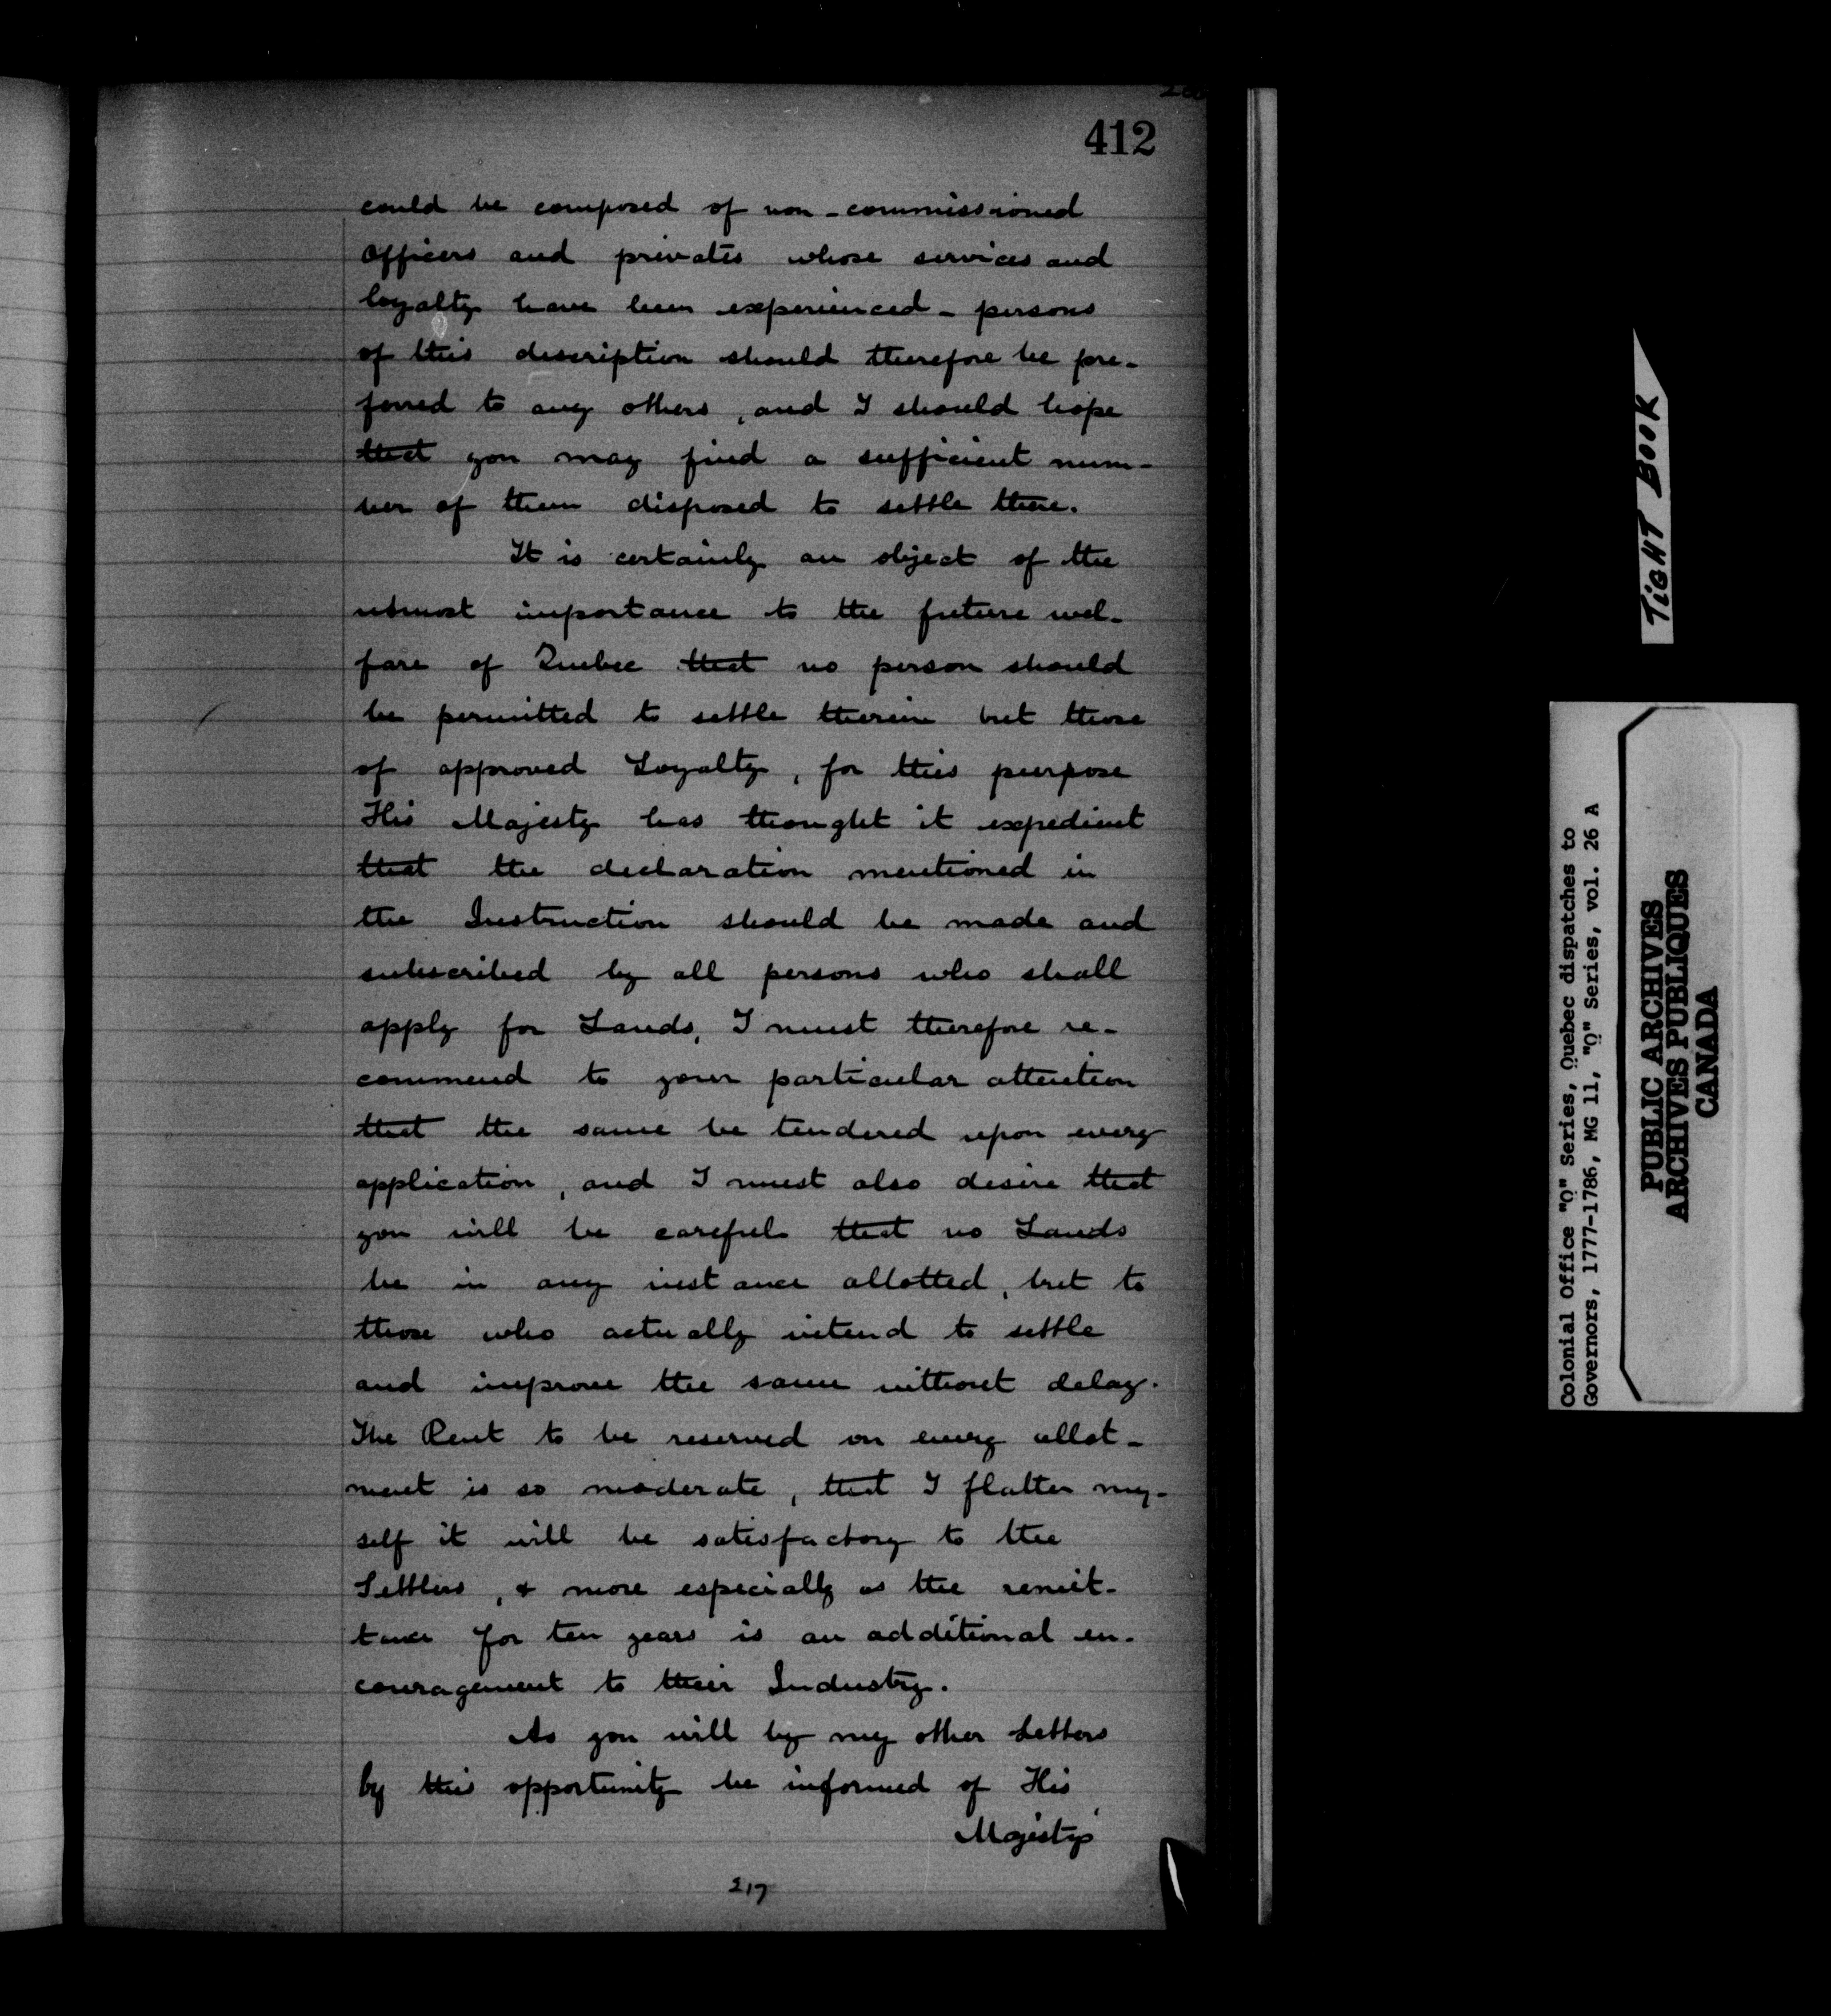 412
could be composed of non-commissioned
Officers and privates whose services and
loyalty have been experienced - persons
of this description should therefore be pre-
ferred to any others, and I should hope
that you may find a sufficient num-
ber of them disposed to settle there.
It is certainly an object of the
utmost importance to the future wel-
fare of Quebec that no person should
be permitted to settle therein but those
of approved Loyalty, for this purpose
His Majesty has thought it expedient
that the declaration mentioned in
the Instruction should be made and
subscribed by all persons who shall
apply for Lands, I must therefore re-
commend to your particular attention
that the same be tendered upon every
application, and I must also desire that
you will be careful that no Lands
be in any instance allotted, but to
those who actually intend to settle
and improve the same without delay.
The Rent to be reserved on every allot-
ment is so moderate, that I flatter my-
self it will be satisfactory to the
Settlers, & more especially as the remit-
tance for ten years is an additional en-
couragement to their Industry.
As you will by my other Letters
by this opportunity be informed of His
Majesty's
217
TIGHT BOOK
Colonial Office "Q" Series, Quebec dispatches to
Governors, 1777-1786, MG 11, "Q" Series, vol. 26 A
PUBLIC ARCHIVES
ARCHIVES PUBLIQUES
CANADA